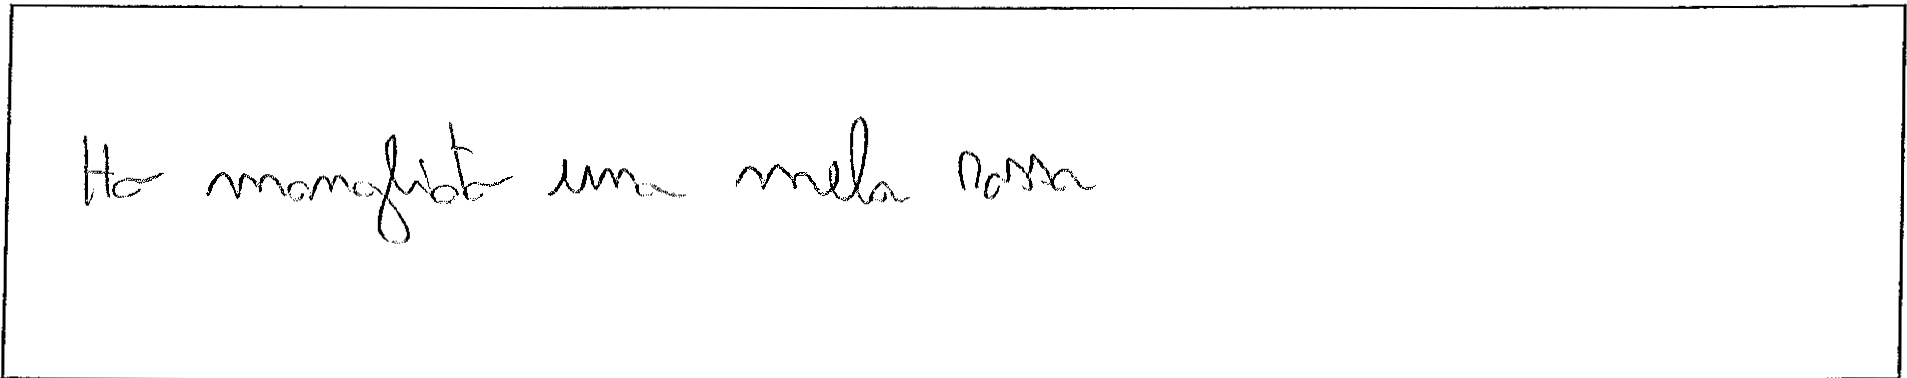 Ho mangiato una mela rossa